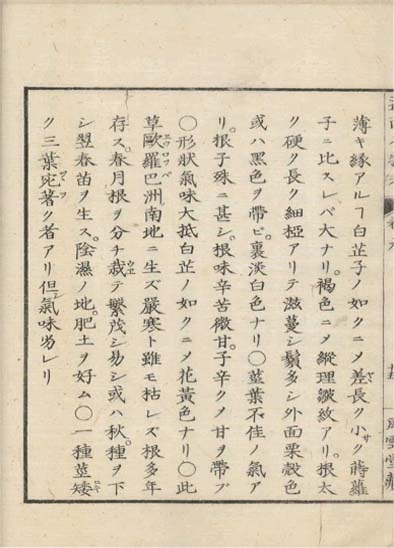 薄キ縁アルフ白芷子ノ如クニメ差長ク小ク蒔蘿
子ニ比スレバ大ナリ。褐色ニメ縱理皺紋アリ。根太
ク硬ク長ク細椏アリテ滋蔓シ鬚多シ外面栗殻色
或ハ黑色ヲ帶ビ。裏淡白色ナリ〇莖葉不佳ノ氣ア
リ。根子殊ニ甚シ。根味辛苦微甘。子辛クメ甘ヲ帶ブ
〇形狀氣味大抵白芷ノ如クニメ花黃色ナリ〇此
草歐羅巴洲南地ニ生ズ嚴寒ト雖モ枯レズ根多年
存ス。春月根ヲ分チ栽テ繁茂シ易シ或ハ秋。種ヲ下
シ翌春苗ヲ生ス。陰濕ノ地。肥土ヲ好ム〇一種莖矮
ク三葉宛著ク者アリ但シ氣味劣レリ